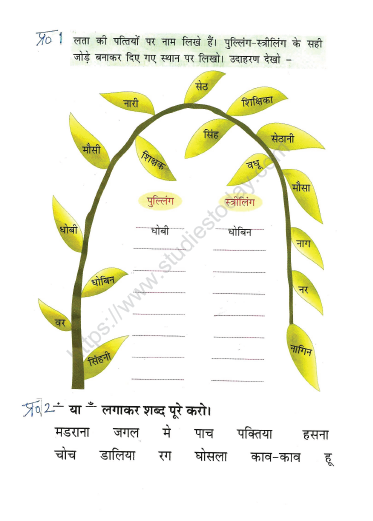 प्र० 1 लता की पत्तियों पर नाम लिखे हैं। पुल्लिंग-स्त्रीलिंग के सही
जोड़े बनाकर दिए गए स्थान पर लिखो। उदाहरण देखो –
सेठ
नारी
शिक्षिका
मौसी
सिंह
सेठानी
शिक्षक
वधू
मौसा
पुल्लिंग स्त्रीलिंग
धोबी
धोबी धोबिन
नाग
धोबिन
नर
वर
नागिन
सिंहनी
https://www.studiestoday.com
प्र० 2 – ं या ँ लगाकर शब्द पूरे करो।
मडराना जगल मे पाच पक्तिया हसना
चोच डालिया रग घोसला काव-काव हू